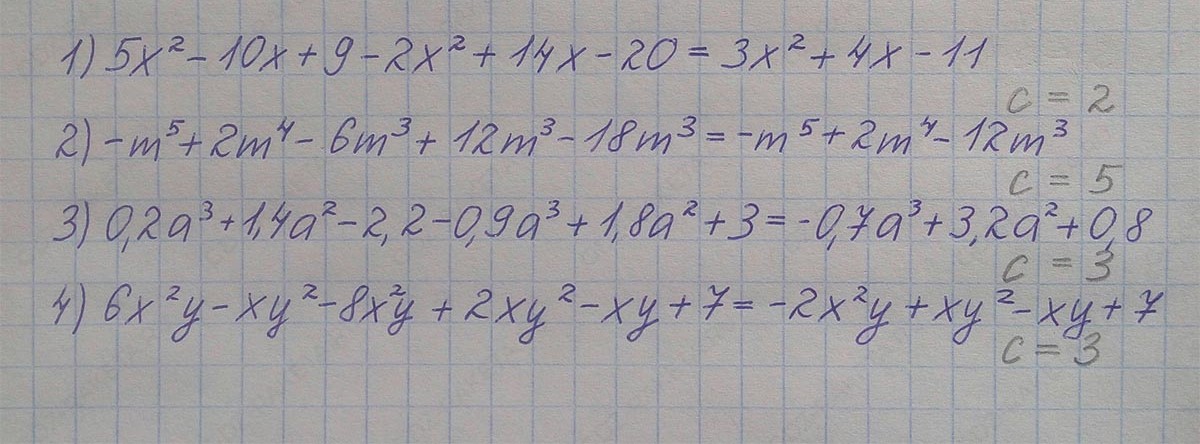 1) 5x² - 10x + 9 - 2x² + 14x - 20 = 3x² + 4x - 11
c = 2
2) -m⁵ + 2m⁴ - 6m³ + 12m³ - 18m³ = -m⁵ + 2m⁴ - 12m³
c = 5
3) 0,2a³ + 1,4a² - 2,2 - 0,9a³ + 1,8a² + 3 = -0,7a³ + 3,2a² + 0,8
c = 3
4) 6x²y - xy² - 8x²y + 2xy² - xy + 7 = -2x²y + xy² - xy + 7
c = 3